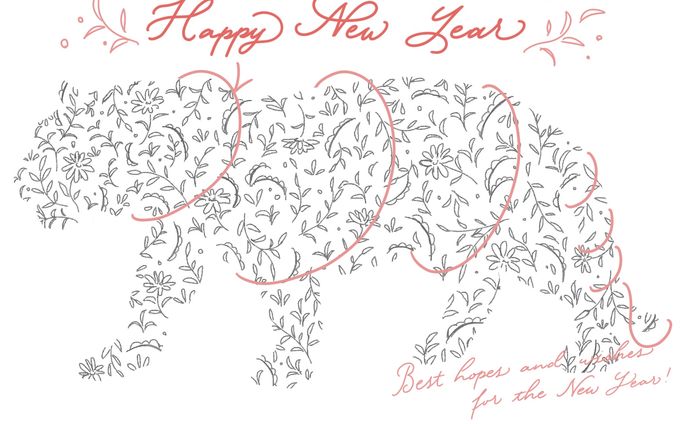 Happy New Year
Best hopes and wishes
for the New Year!